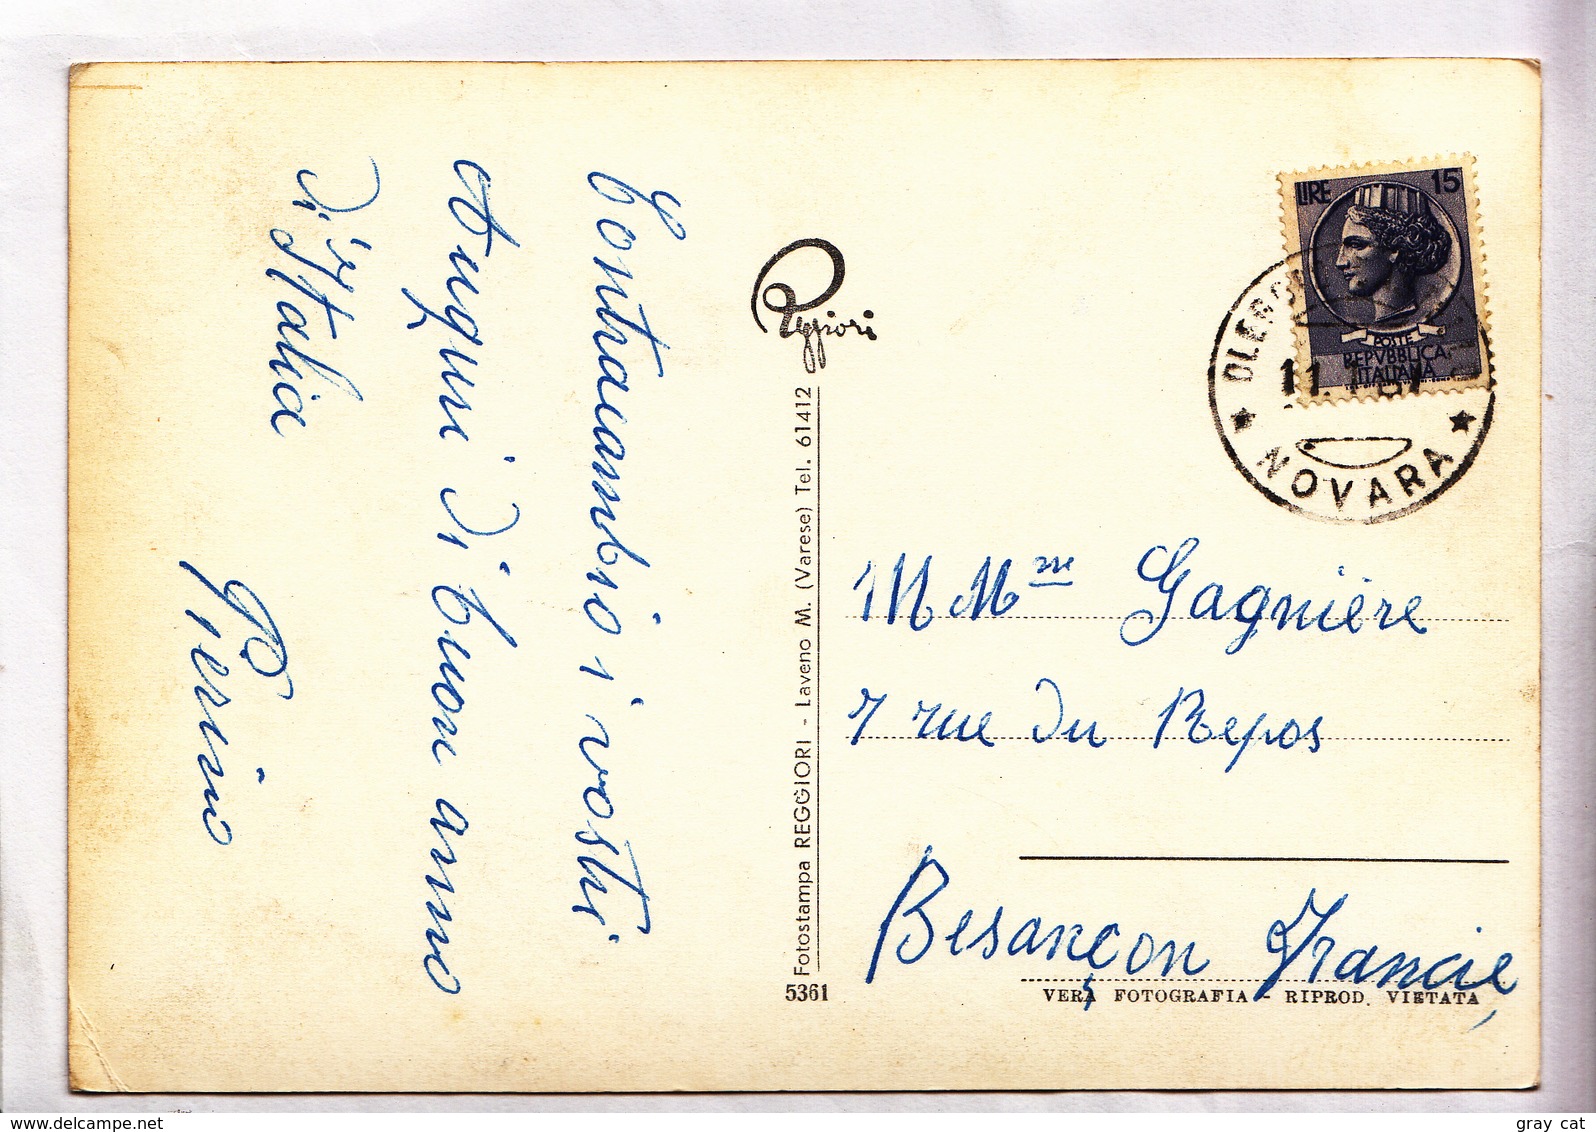 Contracambio i vostri
Auguri di buon anno
di Italia
Pierino
Reggiori
Fotostampa REGGIORI - Laveno M. (Varese) Tel. 61412
5361
LIRE 15
POSTE
REPVBBLICA
ITALIANA
NOVARA
M Mme Gagnière
7 rue du Repos
Besançon Francie
VERA FOTOGRAFIA - RIPROD. VIETATA
www.delcampe.net
gray cat